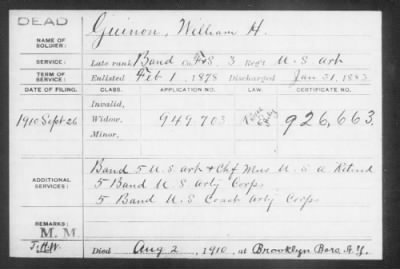 DEAD
NAME OF SOLDIER: Guinon, William H.
SERVICE: Late rank Band Co. F&S 3 Reg't U.S Art
TERM OF SERVICE: Enlisted Feb 1, 1878 Discharged Jan 31, 1883
DATE OF FILING. CLASS. APPLICATION NO. LAW. CERTIFICATE NO.
Invalid,
1910 Sept 26 Widow, 949703 926,663.
Minor,
ADDITIONAL SERVICES: Band 5 U.S Art & Chf Mus U.S A Retired
5 Band U.S Arty Corps
5 Band U.S Coast Arty Corps
REMARKS: M. M.
Died Aug 2, 1910, at Brooklyn Boro, N.Y.